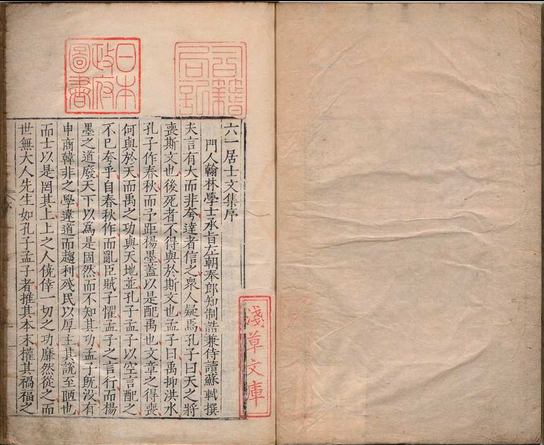 日本
政府
圖書
六一居士文集序
門人翰林學士承旨左朝奉郎知制誥兼侍讀蘇軾撰
夫言有大而非夸達者信之衆人疑焉孔子曰天之將
喪斯文也後死者不得與於斯文也孟子曰禹抑洪水
孔子作春秋而予距楊墨蓋以是配禹也文章之得喪
何與於天而禹之功與天地並孔子孟子以空言配之
不已夸乎自春秋作而亂臣賊子懼孟子之言行而楊
墨之道廢天下以為是固然而不知其功孟子既沒有
申商韓非之學違道而趨利殘民以厚主其說至陋也
而士以是罔其上上之人僥倖一切之功靡然從之而
世無大人先生如孔子孟子者推其本末權其禍福之
淺草文庫